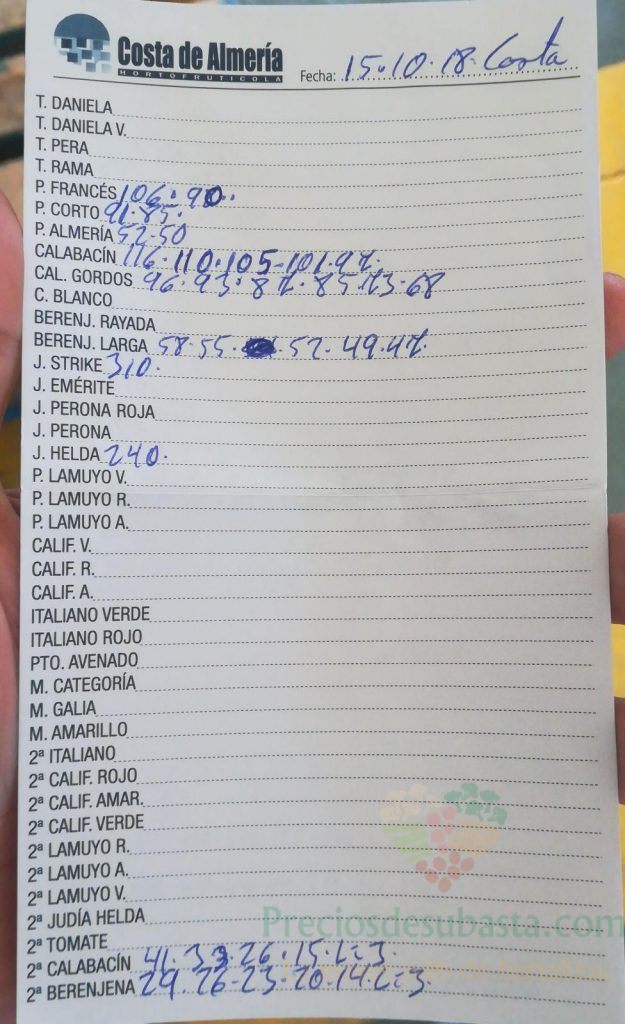 Costa de Almería
HORTOFRUTICOLA
Fecha: 15.10.18. Costa
T. DANIELA
T. DANIELA V.
T. PERA
T. RAMA
P. FRANCÉS 106.90.
P. CORTO 91.85.
P. ALMERÍA 52-50
CALABACÍN 116.110.105-101.97.
CAL. GORDOS 96.93.87.85.73-68
C. BLANCO
BERENJ. RAYADA
BERENJ. LARGA 58.55. 52.49.47.
J. STRIKE 310.
J. EMÉRITE
J. PERONA ROJA
J. PERONA
J. HELDA 240.
P. LAMUYO V.
P. LAMUYO R.
P. LAMUYO A.
CALIF. V.
CALIF. R.
CALIF. A.
ITALIANO VERDE
ITALIANO ROJO
PTO. AVENADO
M. CATEGORÍA
M. GALIA
M. AMARILLO
2ª ITALIANO
2ª CALIF. ROJO
2ª CALIF. AMAR.
2ª CALIF. VERDE
2ª LAMUYO R.
2ª LAMUYO A.
2ª LAMUYO V.
2ª JUDÍA HELDA
Preciosdesubasta.com
2ª TOMATE
2ª CALABACÍN 41.33.26.15.L=3.
2ª BERENJENA 29.26-23-20.14.L=3.